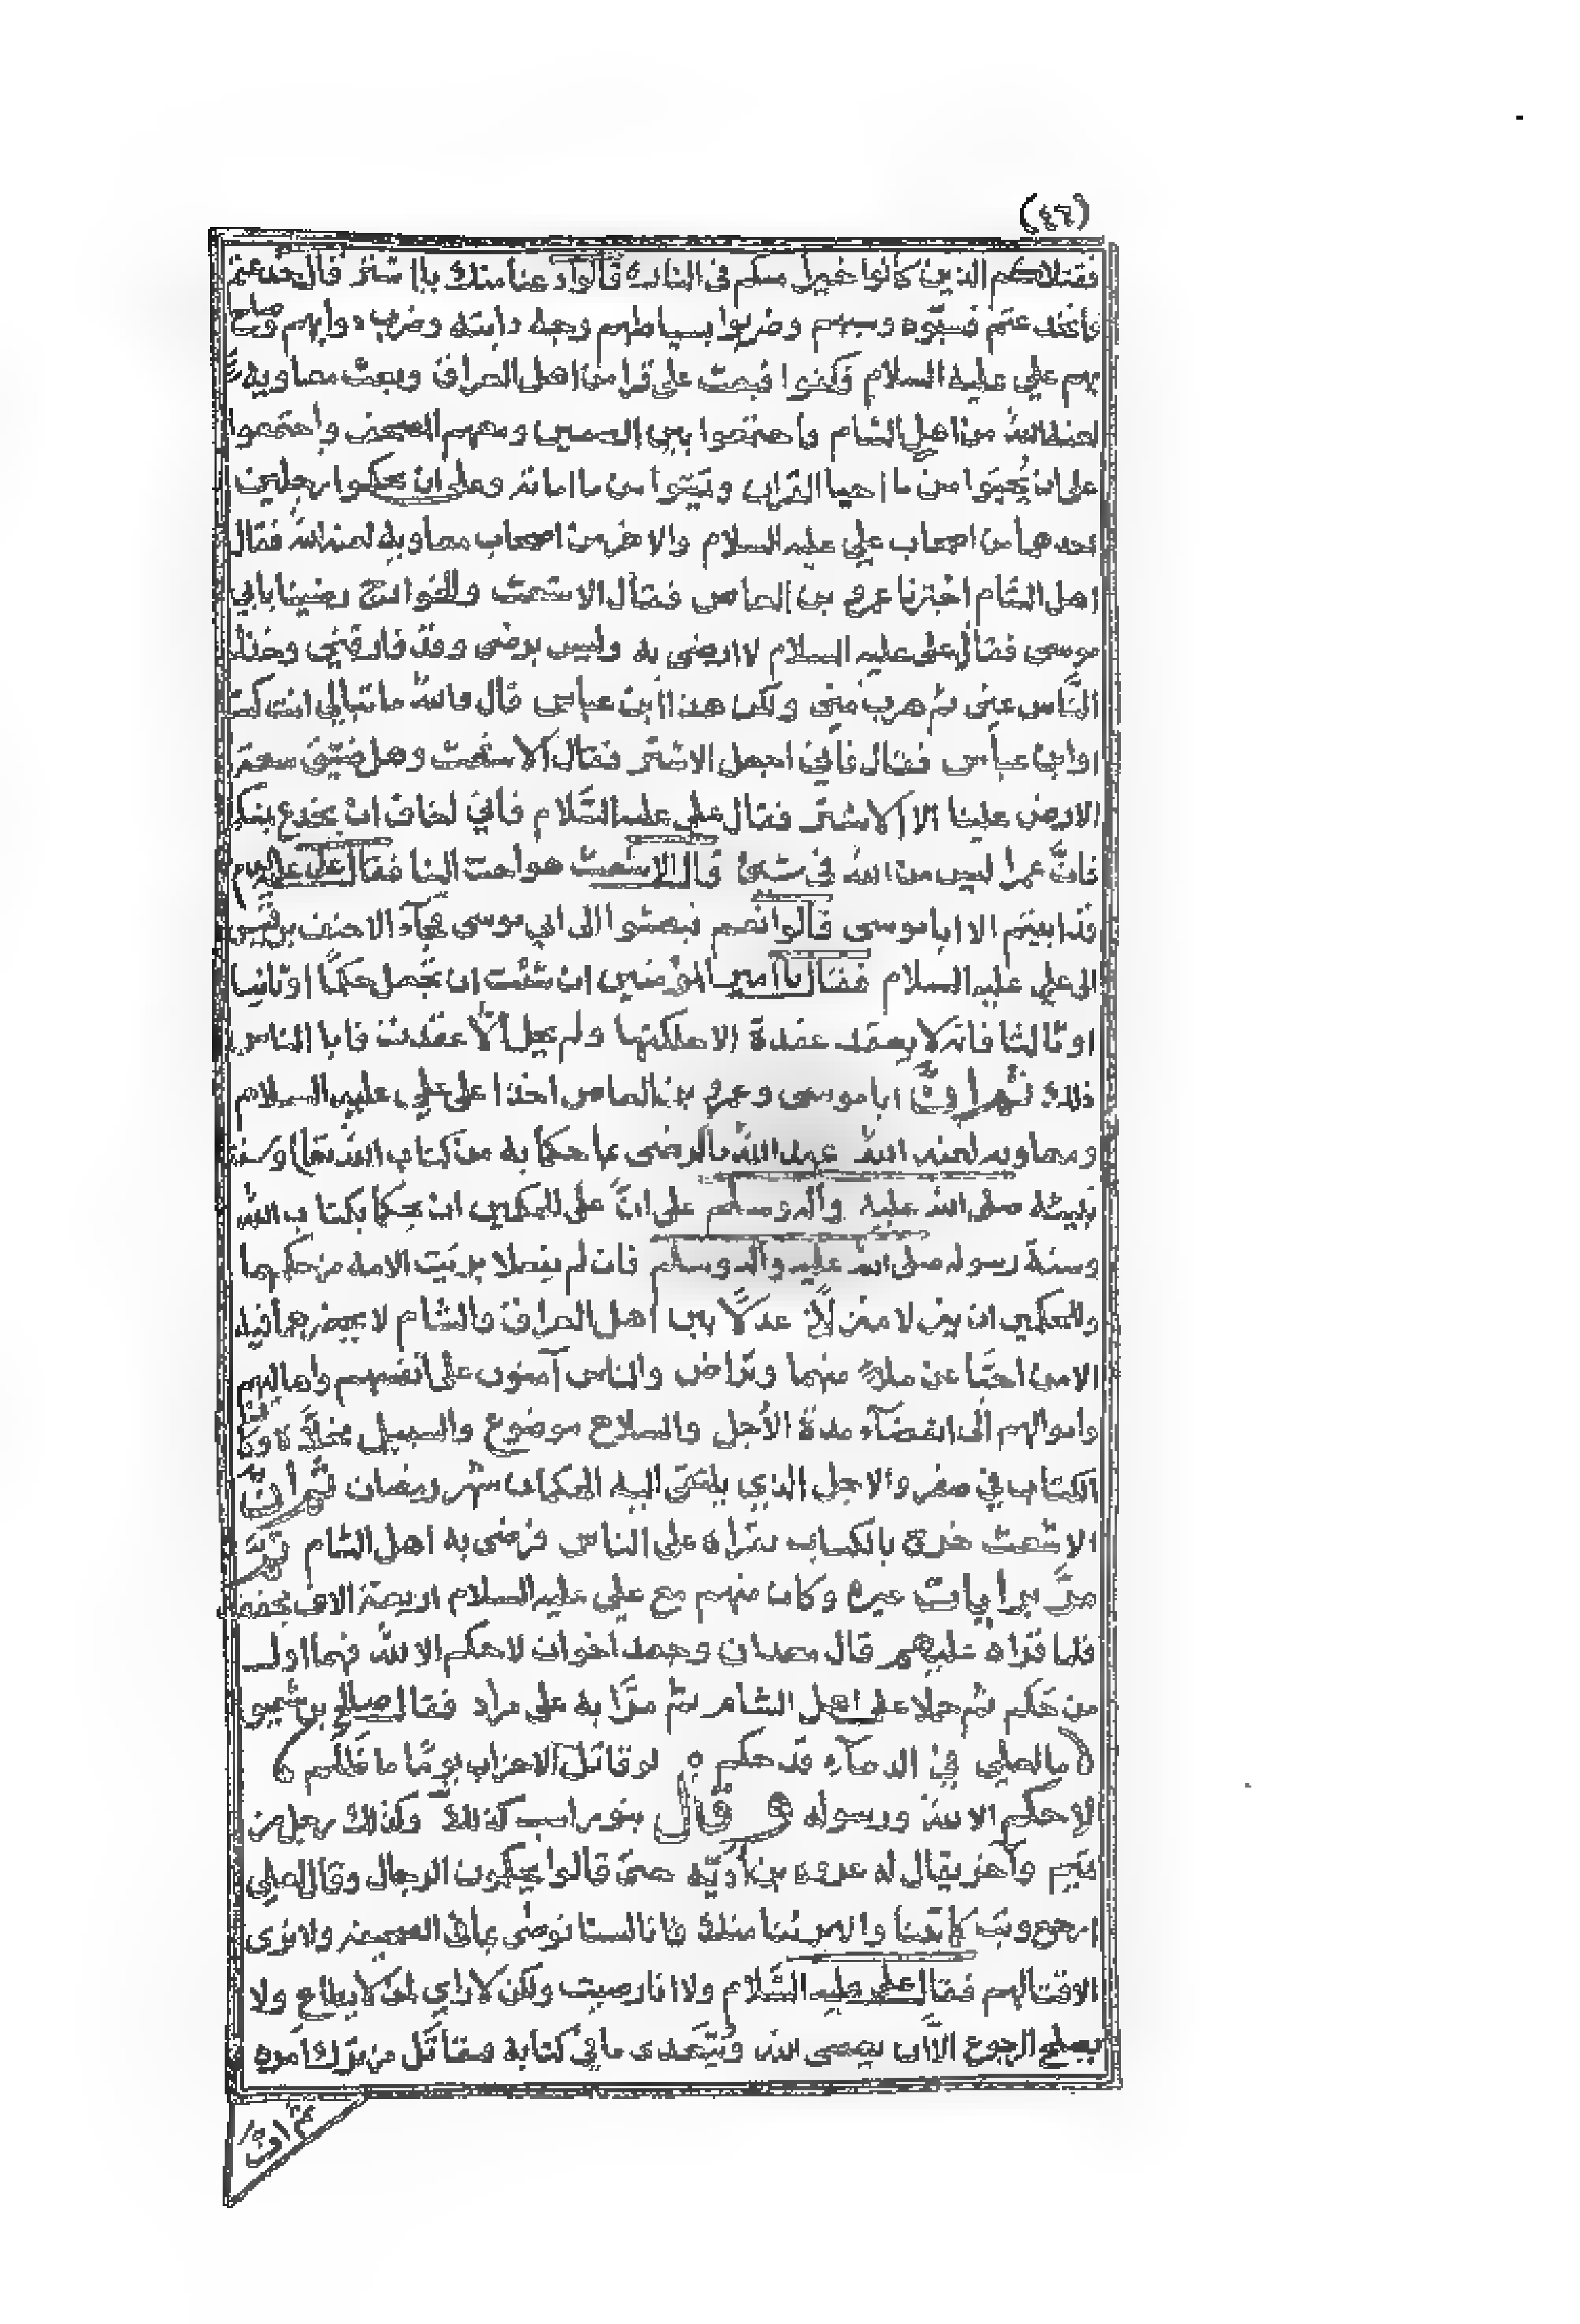 (٤٦)
فقتلاكم الذين كانوا خيرا منكم في النار قالوا دعنا منك يا اشتر قال خدعتم
وأخدعتم فسبّوه وسبهم وضربوا بسياطهم وجه دابته وضرب دوابهم وصاح
بهم علي عليه السلام فكفوا فبعث علي قرا من اهل العراق وبعث معاويه
لعنه الله من اهل الشام واجتمعوا بين الصفين ومعهم المصحف واجتمعوا
على ان يحيوا من ما احيا القران ويميتوا من ما اماته وعلى ان يحكموا رجلين
احدهما من اصحاب علي عليه السلام والاخر من اصحاب معاويه لعنه الله فقال
اهل الشام اخترنا عمرو بن العاص فقال الاشعث والخوارج رضينا بابي
موسى فقال علي عليه السلام لا ارضى به وليس برضى وقد فارقني وخذل
النّاس عني ثم هرب مني ولكن هذا ابن عباس قال والله ما نبالي انت كنت
او ابن عباس فقال فأني اجعل الاشتر فقال الاشعث وهل ضيّق سعة
الارض علينا الا الاشتر فقال علي عليه السّلام فاني اخاف ان يخدع يمنكم
فانّ عمرا ليس من الله في شيء قال الاشعث هو احب الينا فقال علي عليه السلام
قد ابيتم الا ابا موسى قالوا نعم فبعثوا الى ابي موسى فجآء الاحنف بن قيس
الى علي عليه السلام فقال يا امير المؤمنين ان شئت ان تجعل حكمًا او ثانيا
او ثالثا فانه لا يعقد عقدة الا حللتها ولم يحل الا عقدت فابا الناس
ذلك ثم ان ابا موسى وعمرو بن العاص اخذا على علي عليه السلام
ومعاويه لعنه الله عهد الله بالرضى بما حكما به من كتاب الله تعا وسنة
نبيّه صلى الله عليه وآله وسلم على انّ على الحكمين ان يحكما بكتاب الله
وسنة رسوله صلى الله عليه وآله وسلم فان لم يفعلا بريت الامة من حكمهما
وللحكمين ان ينزلا منزلًا عدلًا بين اهل العراق والشام لا يحضرهما فيه
الا من احبّا عن ملاء منهما وتراض والناس آمنون على انفسهم واهاليهم
واموالهم الى انقضآء مدة الأجل والسلاح موضوع والسبيل مخلّاة وكان
الكتاب في صفر والاجل الذي يلتقي اليه الحكمان شهر رمضان ثم ان
الاشعث خرج بالكتاب يقراه على الناس فرضى به اهل الشام ثم
مرّ برايات عنزه وكان منهم مع علي عليه السلام اربعة الاف مجفف
فلما قراه عليهم قال معدان وجعد اخوان لا حكم الا لله فهما اول
من حكم ثم حملا على اهل الشام ثم مرّا به على مراد فقال صالح بن شقيق
ما لعلي في الدمآء قد حكم ه لو قاتل الاحزاب يومًا ما ظلم
لا حكم الا لله ورسوله وقال بنو راسب كذلك وكذلك رجل من
تميم وآخر يقال له عروه بن اديّه حتى قالوا يحكمون الرجال وقال لعلي
ارجع وتب كما تبنا والا برئنا منك فانا لسنا نرضى بما في الصحيفة ولا نرى
الا قتالهم فقال علي عليه السّلام ولا انا رضيت ولكن لا راي لمن لا يطاع ولا
يصلح الرجوع الا ان يعصى الله ويتعدى ما في كتابه ونقاتل من ترك امره
ثم ان